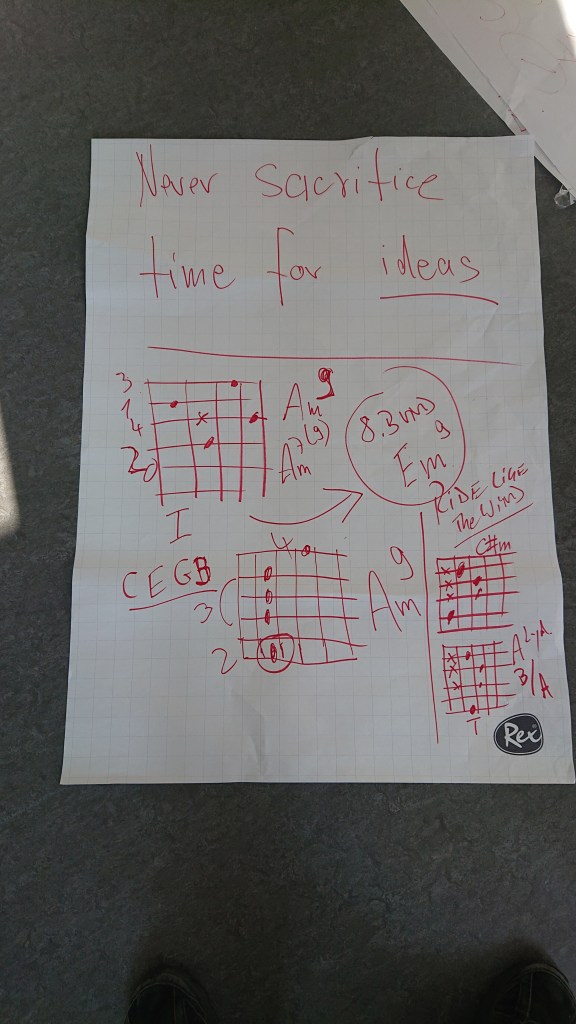 Never sacrifice
time for ideas
3
1
4
2
0
x
Am9
Am7(9)
I
Em9
RIDE LIKE
The Wind
C#m
4
C E G B
3
2
Am9
B/A
T
Rex